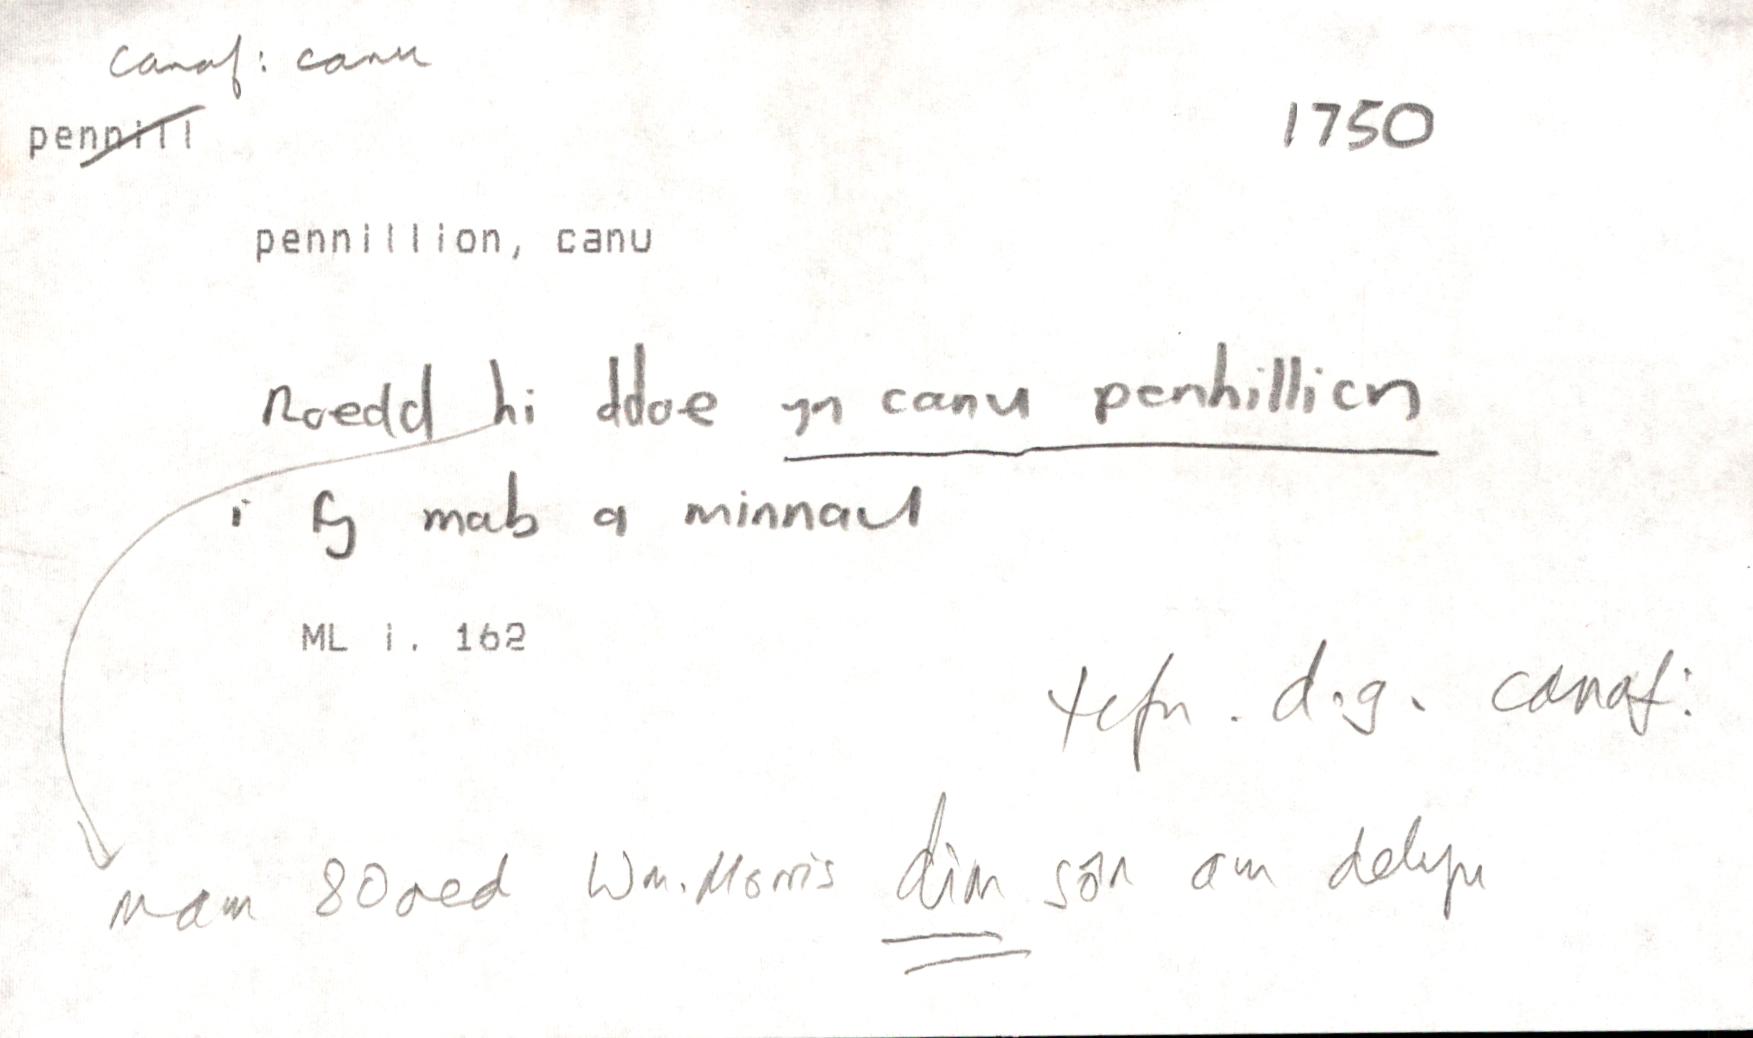 canaf: canu
pennill
1750
pennillion, canu
Roedd hi ddoe yn canu penhillion
i fy mab a minnau
ML i. 162
d.g. canaf:
mam 80oed Wm. Morris dim sôn am delyn